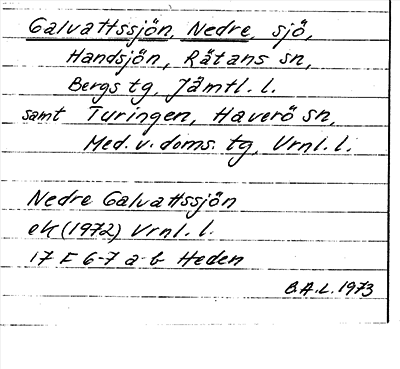 Galvattssjön, Nedre, sjö,
Handsjön, Rätans sn,
Bergs tg, Jämtl. l.
samt Turingen, Haverö sn,
Med. v. doms. tg, Vrnl. l.
Nedre Galvattssjön
ek (1972) Vrnl. l.
17 E 6-7 a-b Heden
B.A.L. 1973